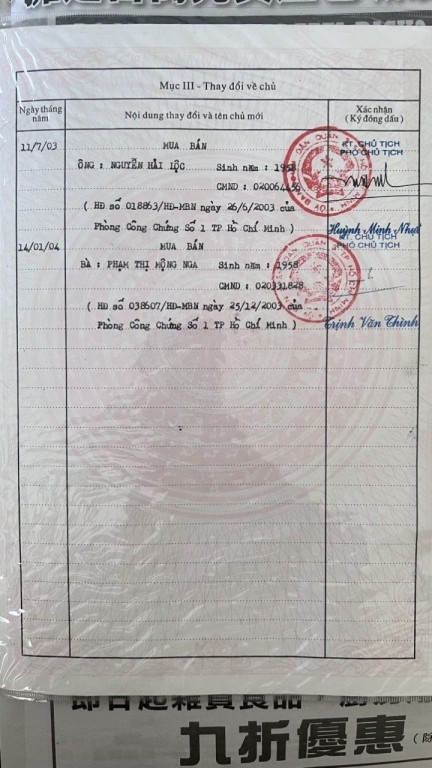 Mục III - Thay đổi về chủ
Ngày tháng năm
Nội dung thay đổi và tên chủ mới
Xác nhận
( Ký đóng dấu )
11/7/03
MUA BÁN
KT. CHỦ TỊCH
PHÓ CHỦ TỊCH
ÔNG : NGUYỄN HẢI LỘC Sinh năm : 1958
CMND : 020064456
( HĐ số 018863/HĐ-MBN ngày 26/6/2003 của
Phòng Công Chứng Số 1 TP Hồ Chí Minh )
Huỳnh Minh Nhựt
14/01/04
MUA BÁN
KT. CHỦ TỊCH
PHÓ CHỦ TỊCH
BÀ : PHẠM THỊ MỘNG NGA Sinh năm : 1958
CMND : 020331828
( HĐ số 038607/HĐ-MBN ngày 25/12/2003 của
Phòng Công Chứng Số 1 TP Hồ Chí Minh )
Trịnh Văn Thình
即日起雜貨食品
九折優惠